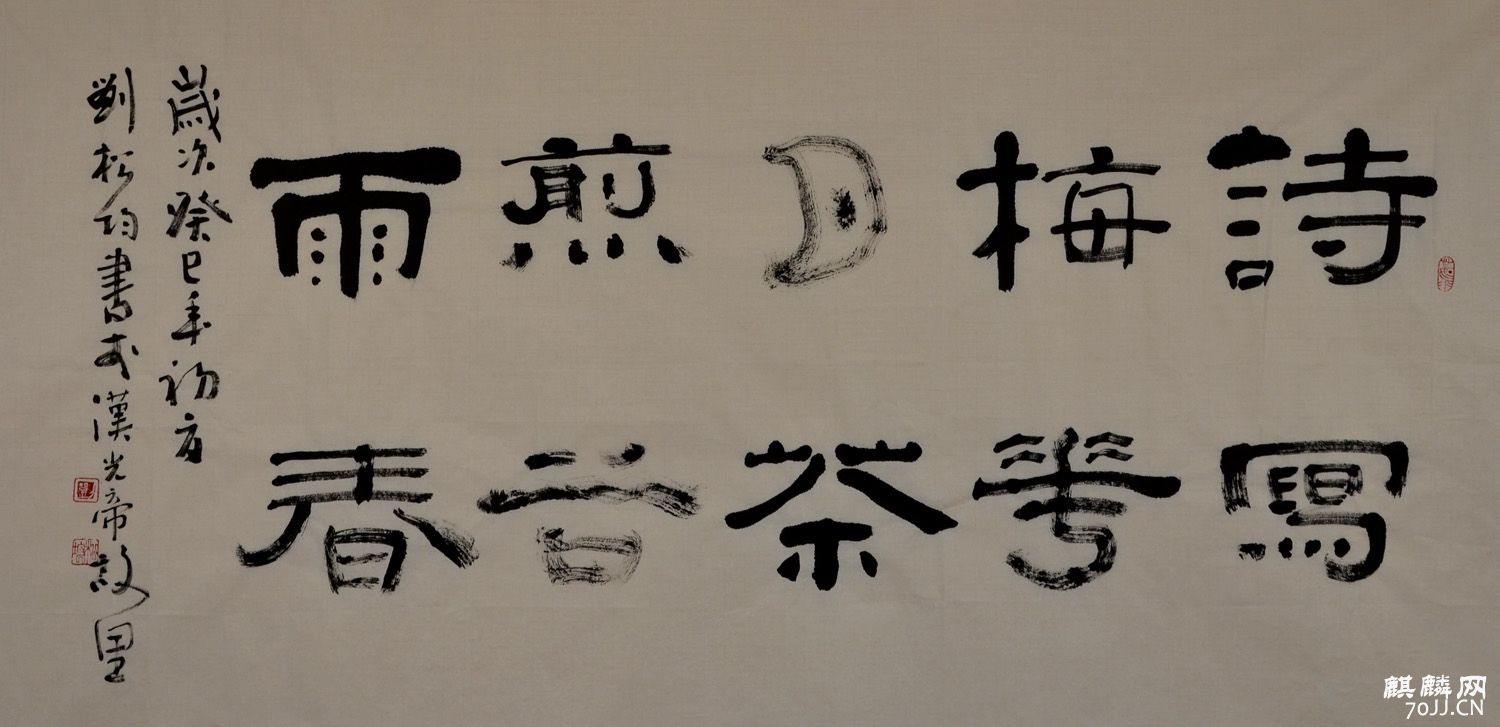 詩寫
梅花
月茶
煎谷
雨春
歲次癸巳年初夏
劉松均書於漢光帝故里
麒麟网
70JJ.CN